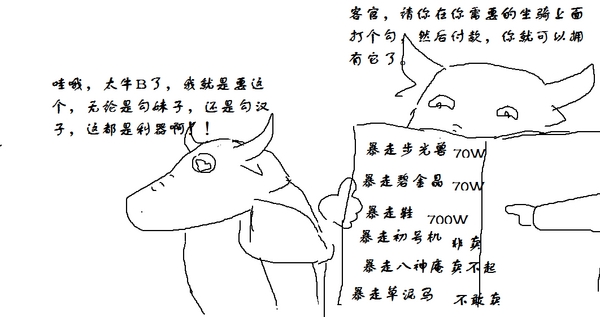 客官，请你在你需要的坐骑上面
打个勾，然后付款，你就可以拥
有它了。
哇哦，太牛B了，我就是要这
个，无论是勾妹子，还是勾汉
子，这都是利器啊！！
暴走步光兽 70W
暴走碧金晶 70W
暴走鞋 700W
暴走初号机 非卖
暴走八神庵 卖不起
暴走草泥马 不敢卖